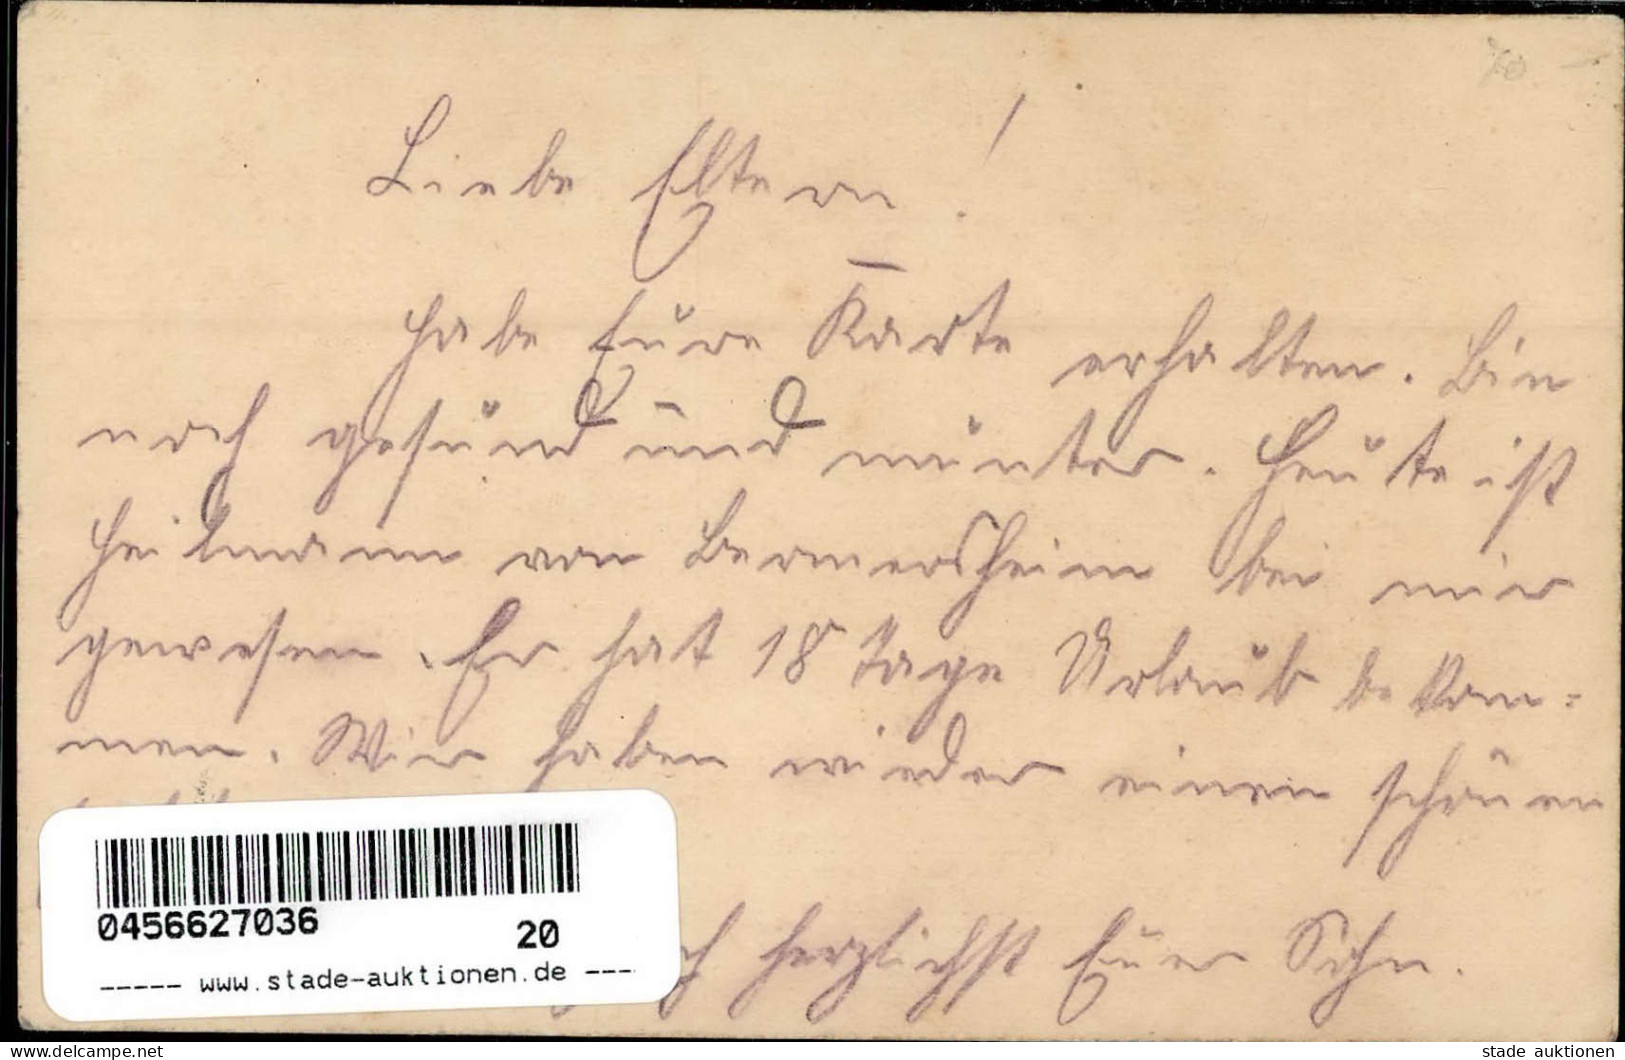 Liebe Eltern!
Habe Eure Karte erhalten. Bin
noch gesund und munter. Heute ist
Heilmann von Bermersheim bei mir
gewesen. Er hat 18 Tage Urlaub bekom=
men. Wir haben wieder einen schönen
herzlichst Euer Sohn.
0456627036
20
----- www.stade-auktionen.de ---
www.delcampe.net
stade_auktionen